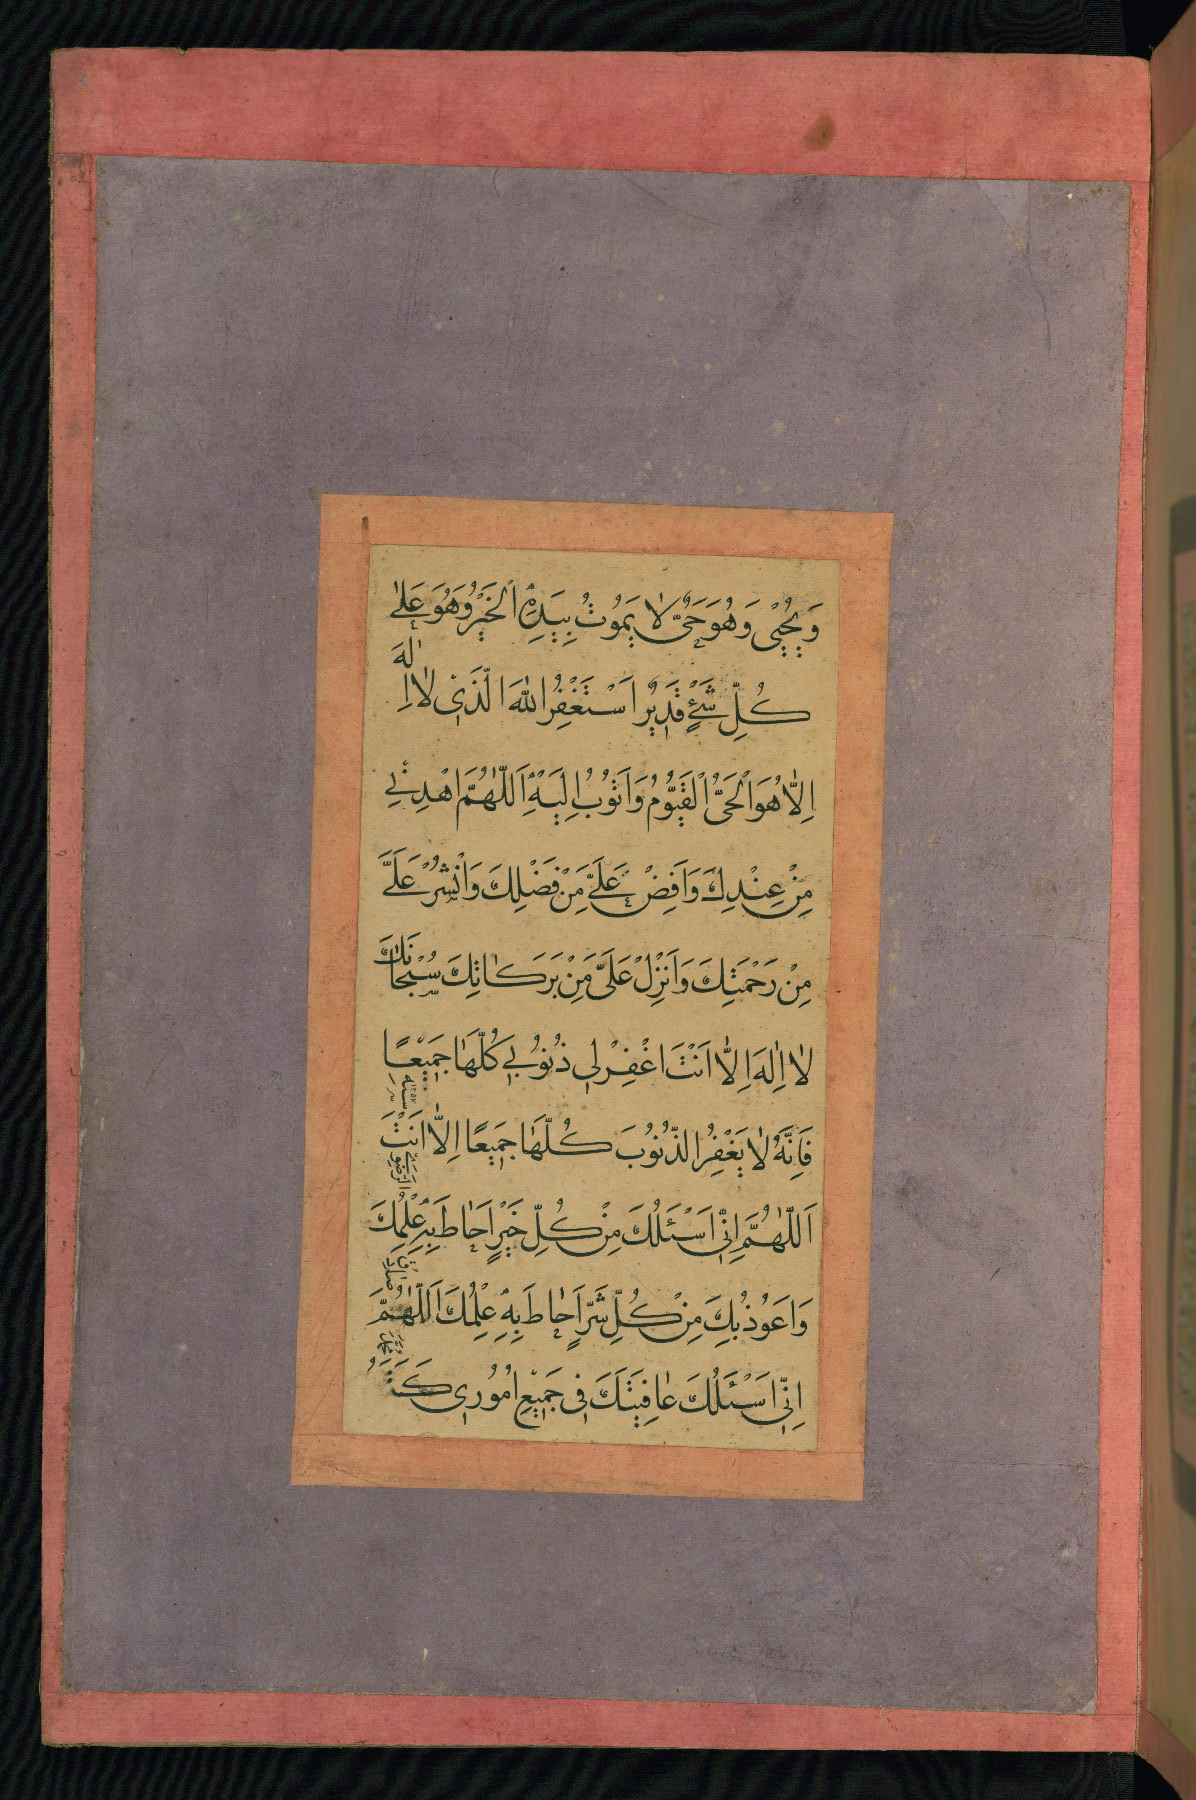 وَيُحْيِى وَهُوَ حَىٌّ لَا يَمُوتُ بِيَدِهِ الْخَيْرُ وَهُوَ عَلىٰ
كُلِّ شَئٍْ قَدِيْرٌ اَسْتَغْفِرُ اللهَ الَّذِىْ لَا اِلٰهَ
اِلَّا هُوَ الْحَىُّ الْقَيُّوْمُ وَاَتُوْبُ اِلَيْهِ اَللّٰهُمَّ اهْدِنِىْ
مِنْ عِنْدِكَ وَاَفِضْ عَلَىَّ مِنْ فَضْلِكَ وَانْشُرْ عَلَىَّ
مِنْ رَحْمَتِكَ وَاَنْزِلْ عَلَىَّ مِنْ بَرَكَاتِكَ سُبْحَانَكَ
لَا اِلٰهَ اِلَّا اَنْتَ اغْفِرْ لِى ذُنُوْبِى كُلَّهَا جَمِيْعًا
فَاِنَّهُ لَا يَغْفِرُ الذُّنُوْبَ كُلَّهَا جَمِيْعًا اِلَّا اَنْتَ
اَللّٰهُمَّ اِنِّى اَسْئَلُكَ مِنْ كُلِّ خَيْرٍ اَحَاطَ بِهِ عِلْمُكَ
وَاَعُوْذُ بِكَ مِنْ كُلِّ شَرٍّ اَحَاطَ بِهِ عِلْمُكَ اَللّٰهُمَّ
اِنِّى اَسْئَلُكَ عَافِيَتَكَ فِى جَمِيْعِ اُمُوْرِى